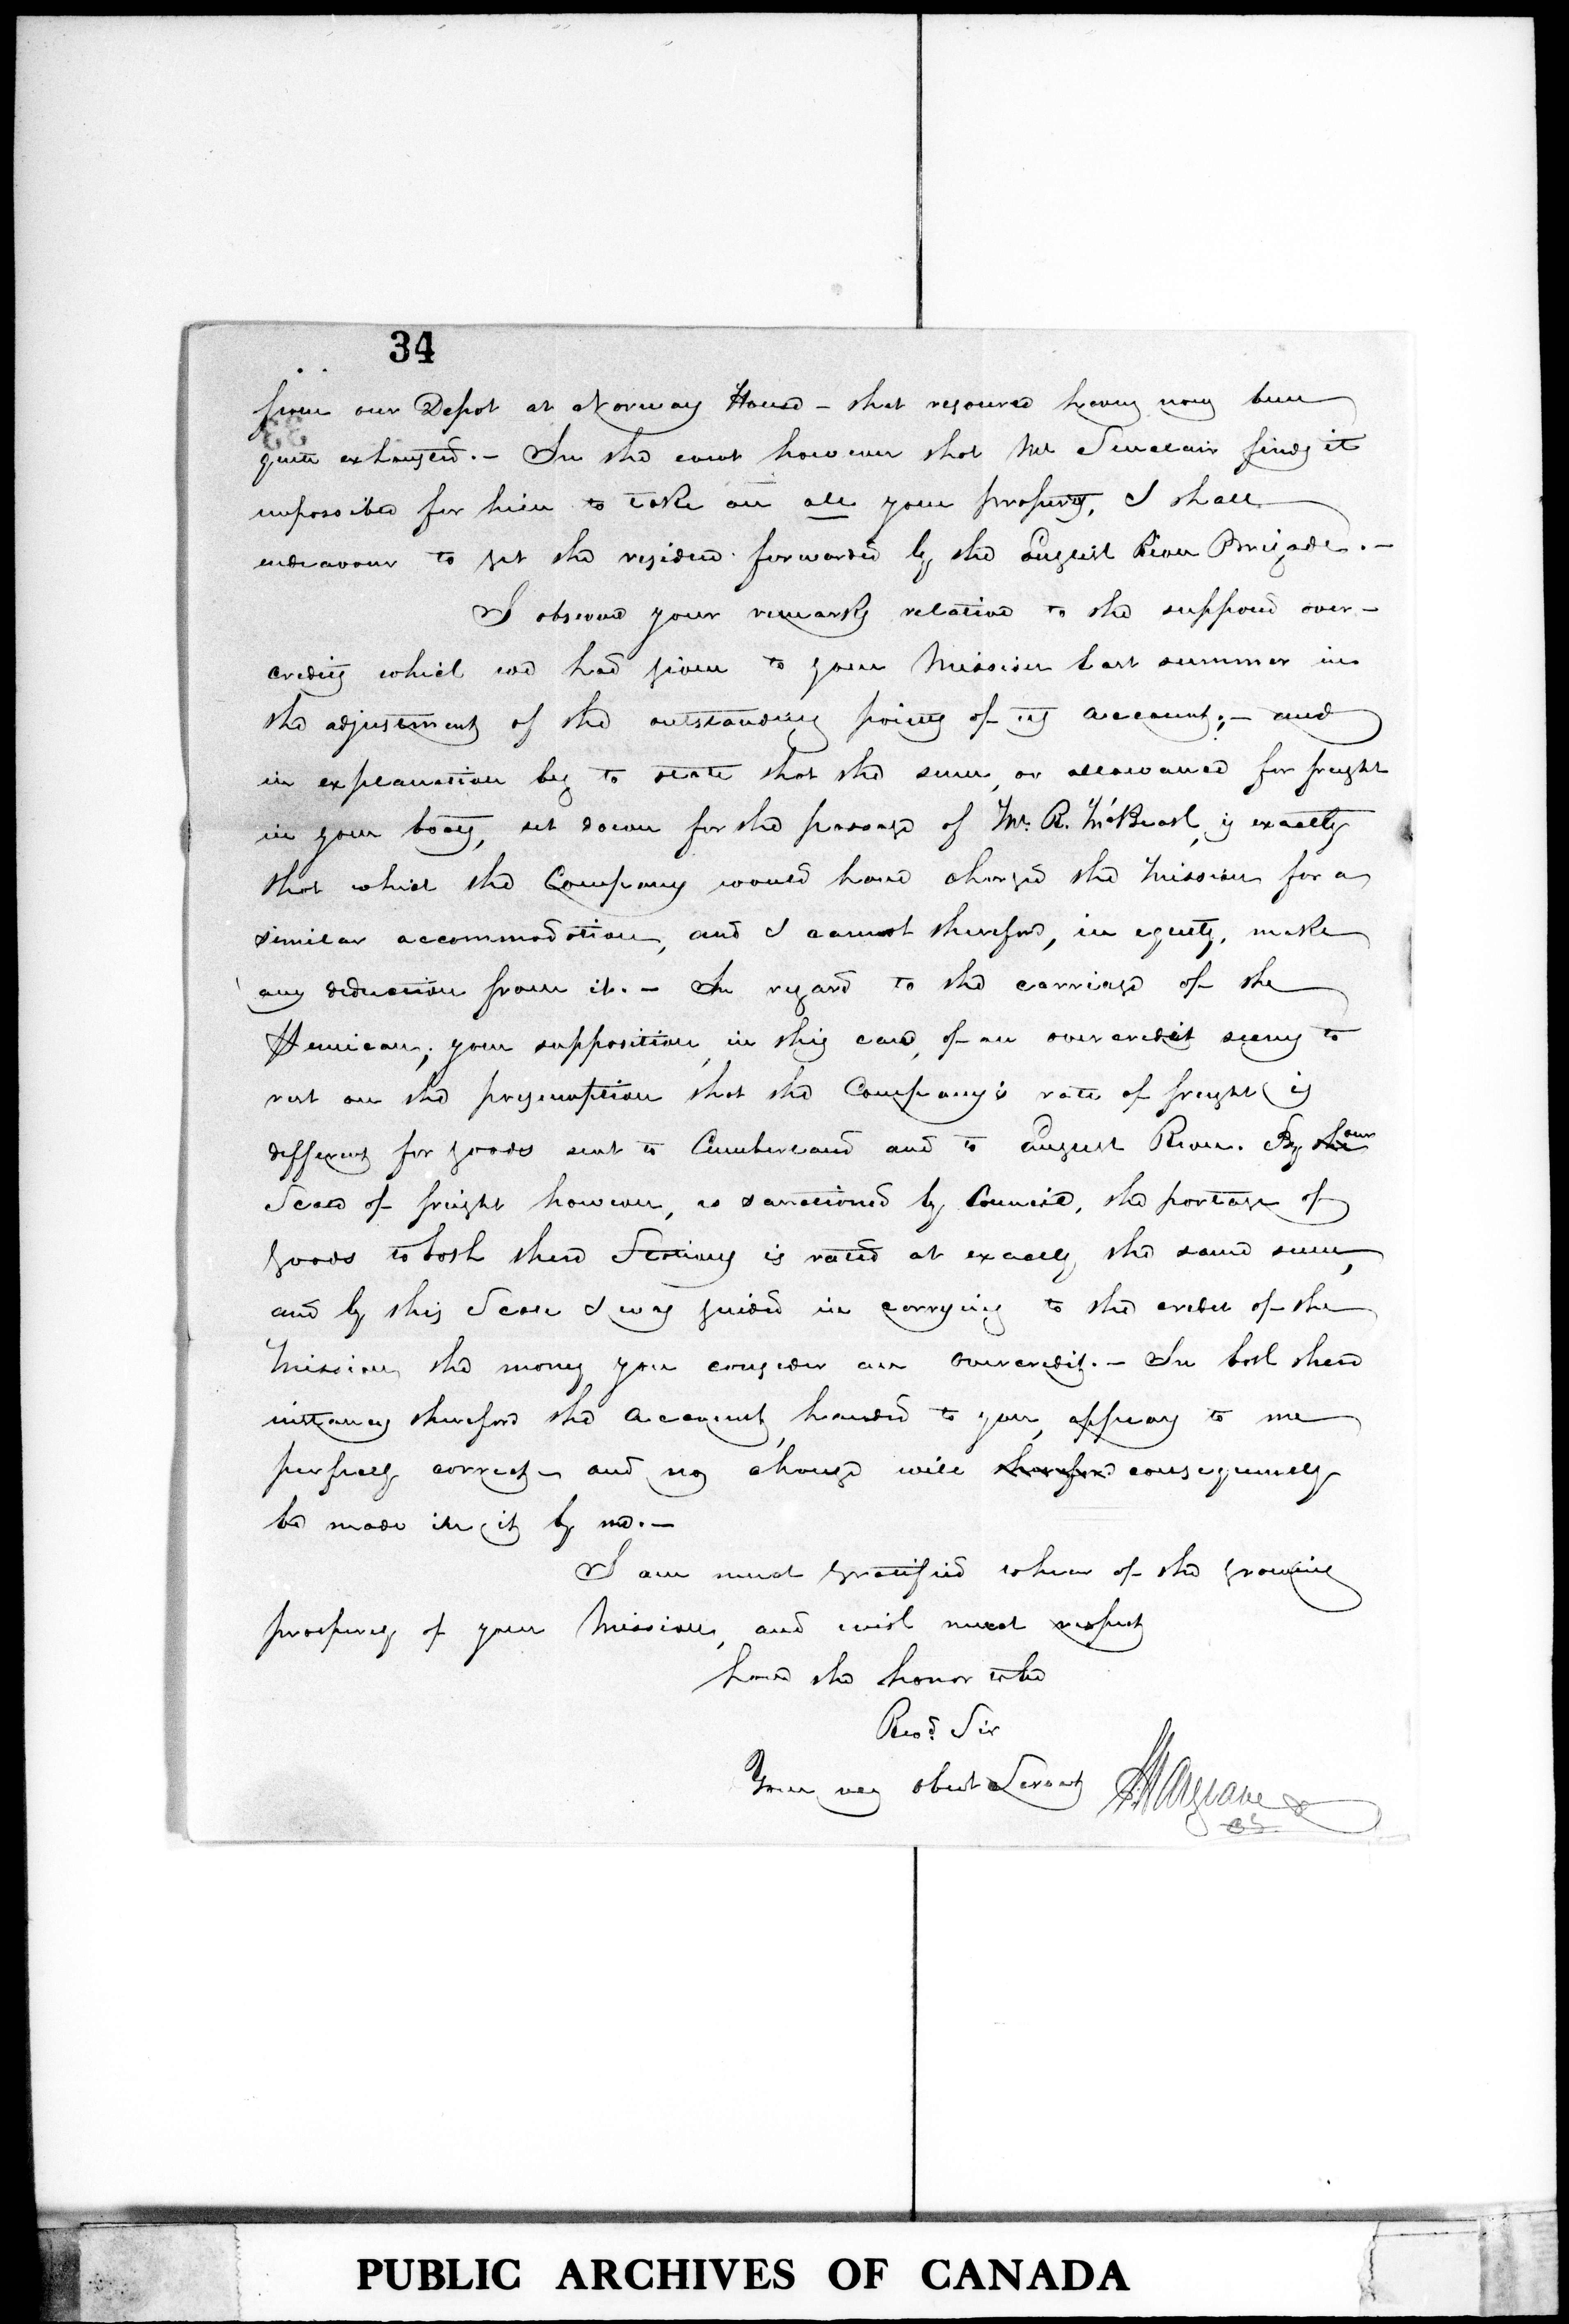 34
from our Depot at Norway House – that resource having now been
quite exhausted. – In the event however that Mr Sinclair finds it
impossible for him to take on all your property, I shall
endeavour to get the residue forwarded by the English River Brigade. –
I observe your remarks relative to the supposed over-
credits which we had given to your Mission last summer in
the adjustment of the outstanding points of its Account; – and
in explanation beg to state that the sum, or allowance for freight
in your boats, set down for the passage of Mr. R. McBeath, is exactly
that which the Company would have charged the Mission for a
similar accommodation, and I cannot therefore, in equity, make
any deduction from it. – In regard to the carriage of the
Pemican; your supposition, in this case, of an overcredit seems to
rest on the presumption that the Company's rate of freight is
different for goods sent to Cumberland and to English River. By the our
Scale of freight however, as sanctioned by Council, the portage of
goods to both these Stations is rated at exactly the same sum,
and by this Scale I was guided in carrying to the credit of the
Mission, the money you consider an overcredit. – In both these
instances therefore the Accounts, handed to you, appears to me
perfectly correct – and no change will therefore consequently
be made in it by me. –
I am much gratified to hear of the growing
prosperity of your Mission, and with much respect
have the honor to be
Revd. Sir
Your very obedt Servant Hargrave
PUBLIC ARCHIVES OF CANADA